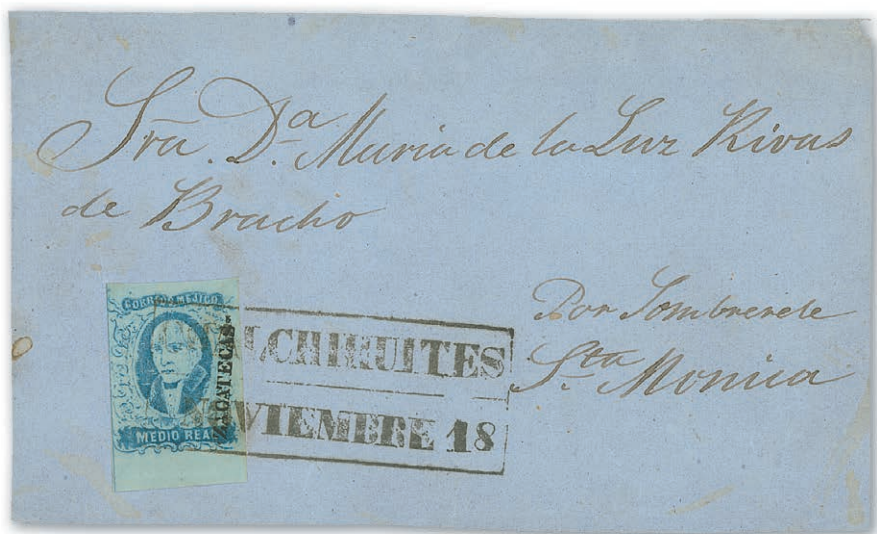 Sra. D.a Maria de la Luz Rivas
de Bracho
Por Sombrerete
S.ta Monica
CORREOS MEJICO
ZACATECAS
MEDIO REAL
CHALCHIHUITES
NOVIEMBRE 18